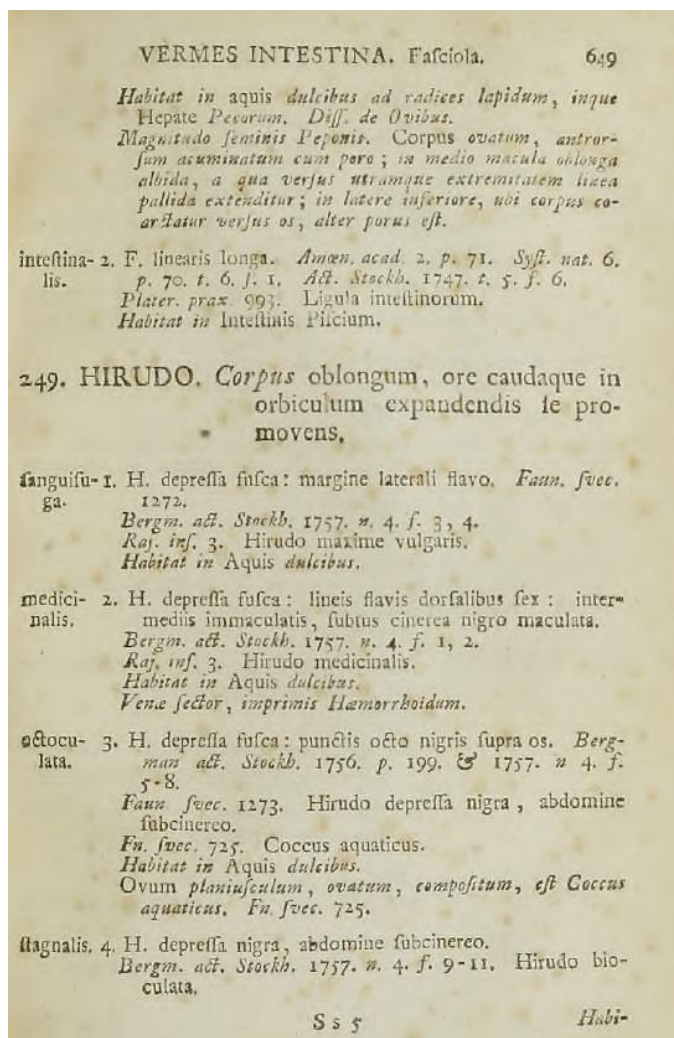 VERMES INTESTINA. Faſciola. 649
Habitat in aquis dulcibus ad radices lapidum, inque
Hepate Pecorum. Diſſ. de Ovibus.
Magnitudo ſeminis Peponis. Corpus ovatum, antror-
ſum acuminatum cum poro; in medio macula oblonga
albida, a qua verſus utramque extremitatem linea
pallida extenditur; in latere inferiore, ubi corpus co-
arctatur verſus os, alter porus eſt.
inteſtina- 2. F. linearis longa. Amœn. acad. 2. p. 71. Syſt. nat. 6.
lis. p. 70. t. 6. f. 1. Act. Stockh. 1747. t. 5. f. 6.
Plater. prax. 993. Ligula inteſtinorum.
Habitat in Inteſtinis Piſcium.
249. HIRUDO. Corpus oblongum, ore caudaque in
orbiculum expandendis ſe pro-
movens.
ſanguiſu- 1. H. depreſſa fuſca: margine laterali flavo. Faun. ſvec.
ga. 1272.
Bergm. act. Stockh. 1757. n. 4. f. 3, 4.
Raj. inſ. 3. Hirudo maxime vulgaris.
Habitat in Aquis dulcibus.
medici- 2. H. depreſſa fuſca: lineis flavis dorſalibus ſex: inter-
nalis. mediis immaculatis, ſubtus cinerea nigro maculata.
Bergm. act. Stockh. 1757. n. 4. f. 1, 2.
Raj. inſ. 3. Hirudo medicinalis.
Habitat in Aquis dulcibus.
Venæ ſector, imprimis Hæmorrhoidum.
octocu- 3. H. depreſſa fuſca: punctis octo nigris ſupra os. Berg-
lata. man act. Stockh. 1756. p. 199. & 1757. n 4. f.
5-8.
Faun ſvec. 1273. Hirudo depreſſa nigra, abdomine
ſubcinereo.
Fn. ſvec. 725. Coccus aquaticus.
Habitat in Aquis dulcibus.
Ovum planiuſculum, ovatum, compoſitum, eſt Coccus
aquaticus. Fn. ſvec. 725.
ſtagnalis. 4. H. depreſſa nigra, abdomine ſubcinereo.
Bergm. act. Stockh. 1757. n. 4. f. 9-11. Hirudo bio-
culata.
S s 5 Habi-